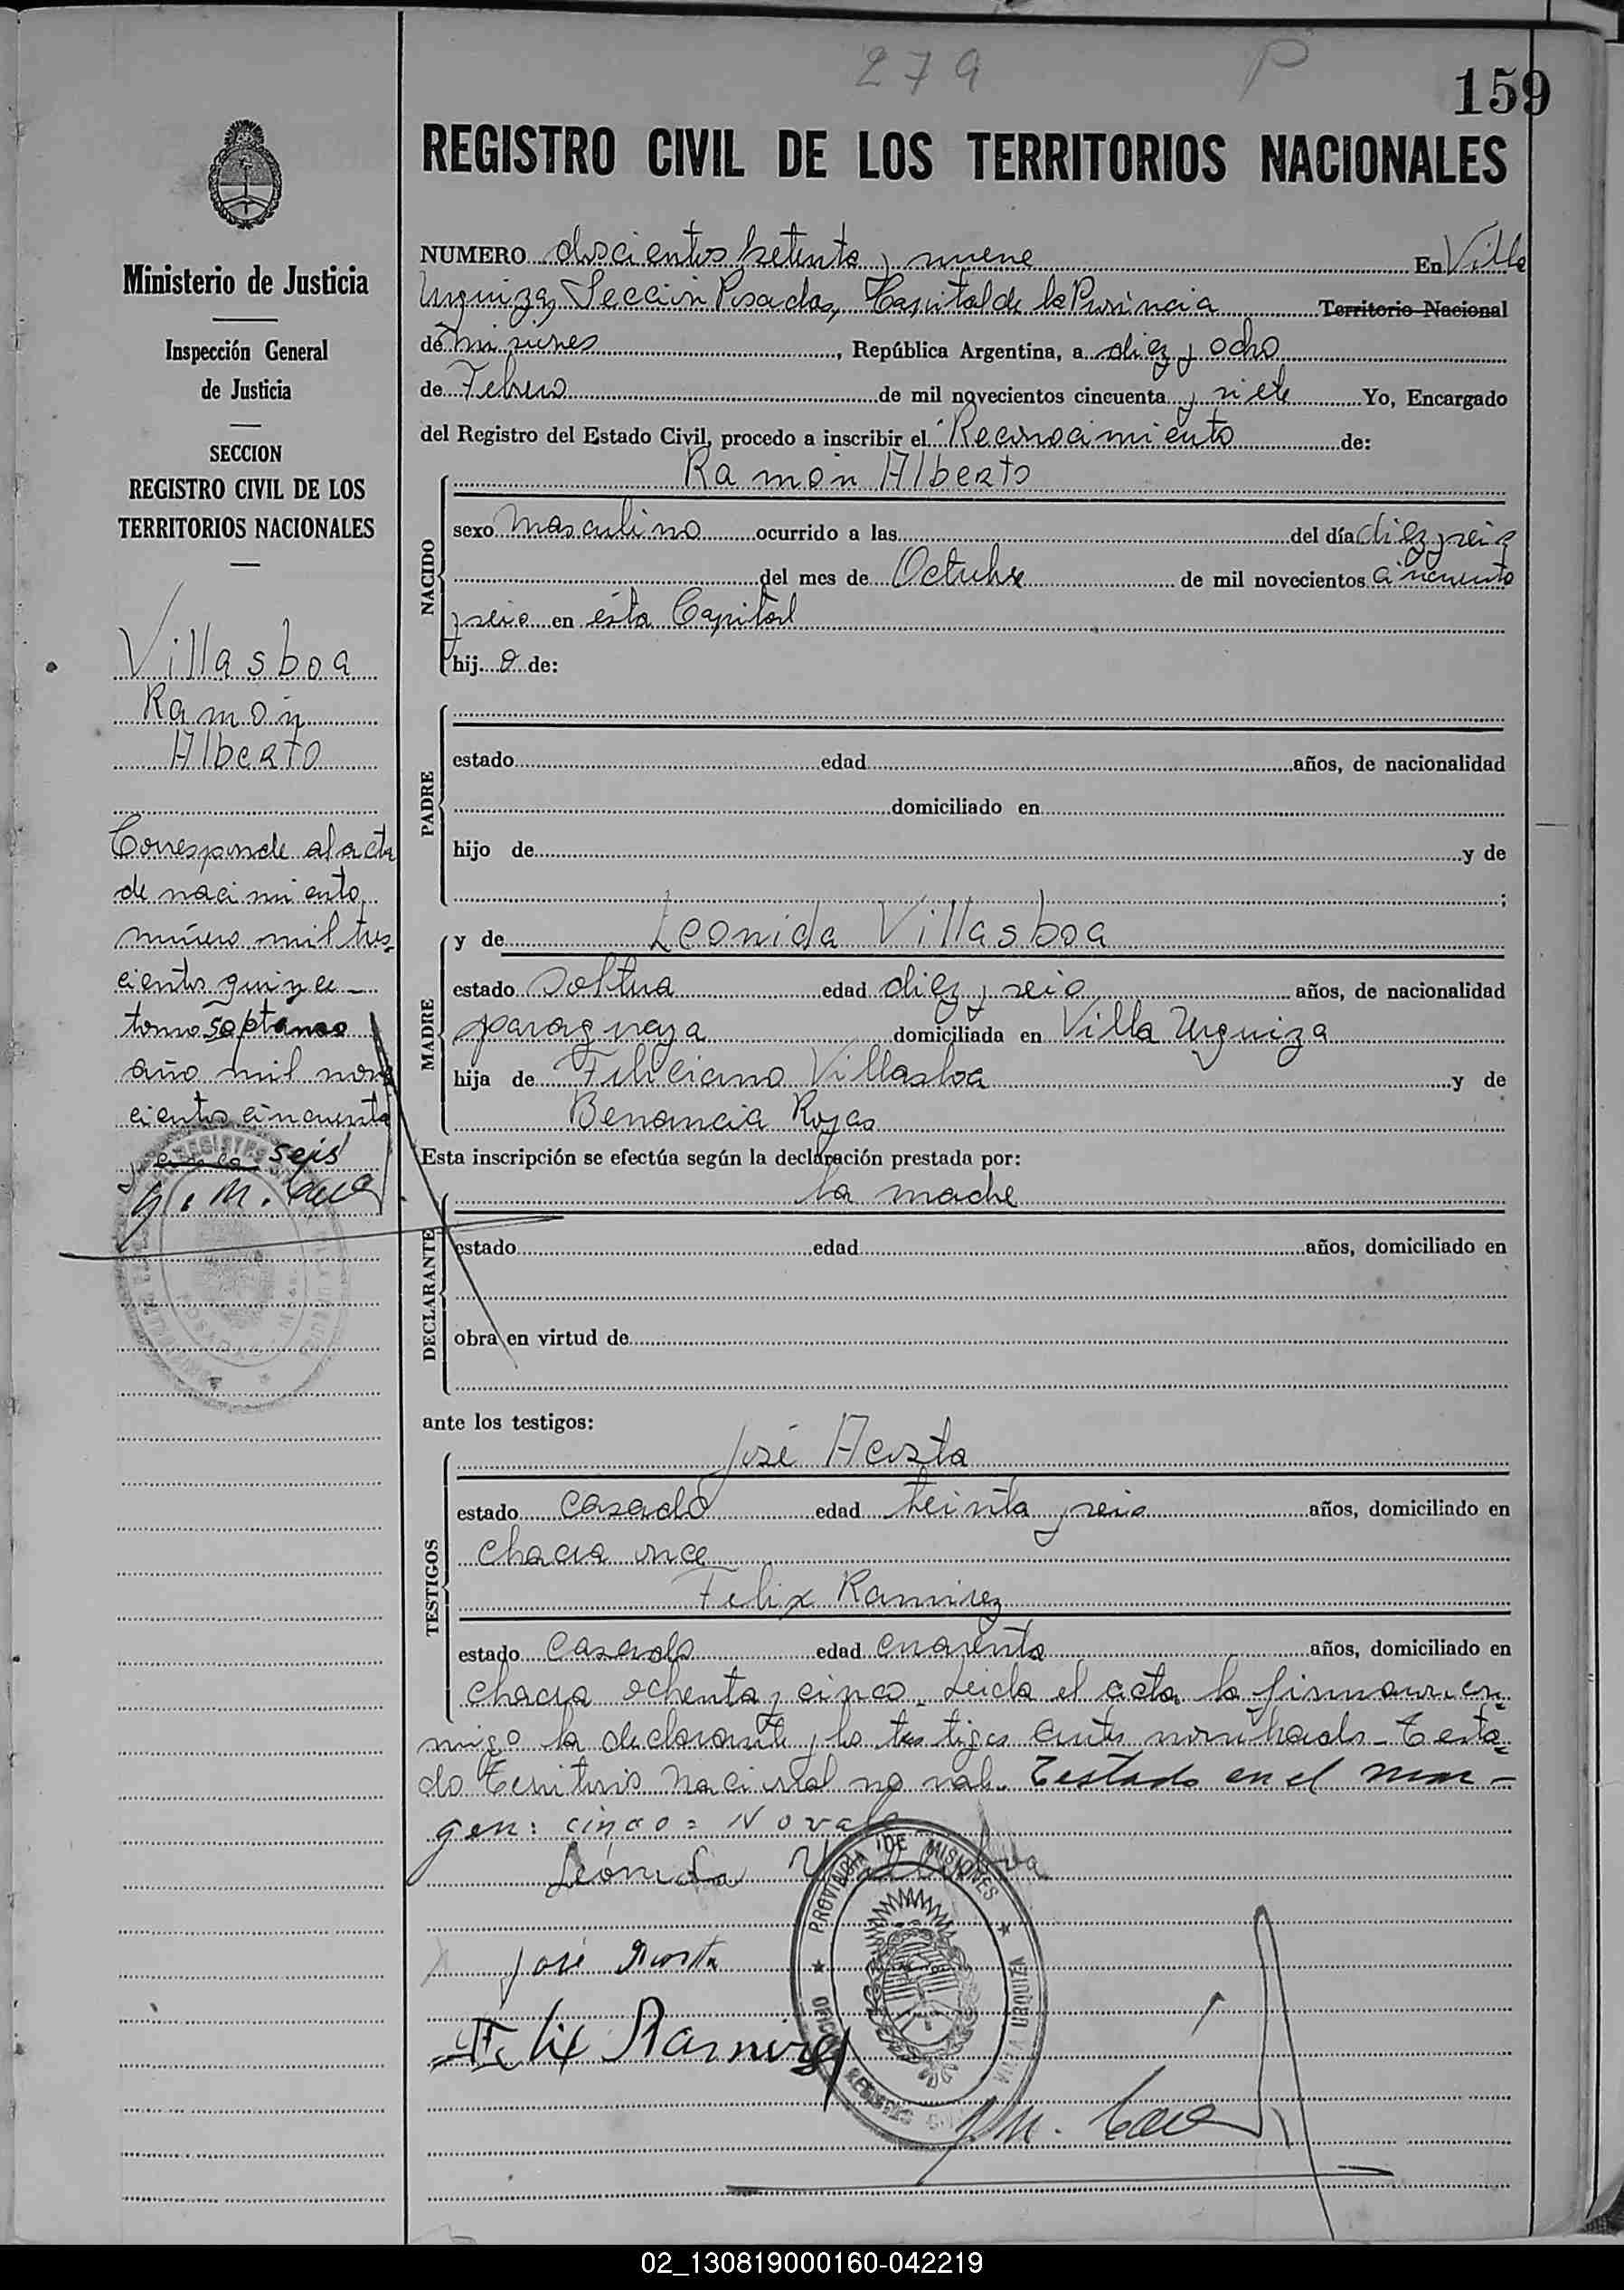 279 P
159
REGISTRO CIVIL DE LOS TERRITORIOS NACIONALES
Ministerio de Justicia
Inspección General
de Justicia
SECCION
REGISTRO CIVIL DE LOS
TERRITORIOS NACIONALES
Villasboa
Ramón
Alberto
Corresponde al acta
de nacimiento
número mil tres-
cientos quince -
tomo séptimo
año mil nove
cientos cincuenta
y cinco seis
NUMERO doscientos setenta y nueve En Villa
Urquiza, Sección Posadas, Capital de la Provincia Territorio Nacional
de Misiones, República Argentina, a diez y ocho
de Febrero de mil novecientos cincuenta y siete Yo, Encargado
del Registro del Estado Civil, procedo a inscribir el Reconocimiento de:
NACIDO
Ramón Alberto
sexo masculino ocurrido a las del día diez y seis
del mes de Octubre de mil novecientos cincuenta
y seis en ésta Capital
hij o de:
PADRE
estado edad años, de nacionalidad
domiciliado en
hijo de y de
;
MADRE
y de Leonida Villasboa
estado soltera edad diez y seis años, de nacionalidad
paraguaya domiciliada en Villa Urquiza
hija de Feliciano Villasboa y de
Benancia Rojas
Esta inscripción se efectúa según la declaración prestada por:
DECLARANTE
la madre
estado edad años, domiciliado en
obra en virtud de
ante los testigos:
TESTIGOS
José Acosta
estado casado edad treinta y seis años, domiciliado en
chacra once
Felix Ramirez
estado casado edad cuarenta años, domiciliado en
chacra ochenta y cinco. Leida el acta la firmaron con-
migo la declarante y los testigos antes nombrado - Testa-
do Territorio Nacional no vale. Testado en el mar-
gen: cinco = No vale
Leónida Villasboa
José Acosta
Felix Ramirez
PROVINCIA DE MISIONES
VILLA URQUIZA
02_130819000160-042219